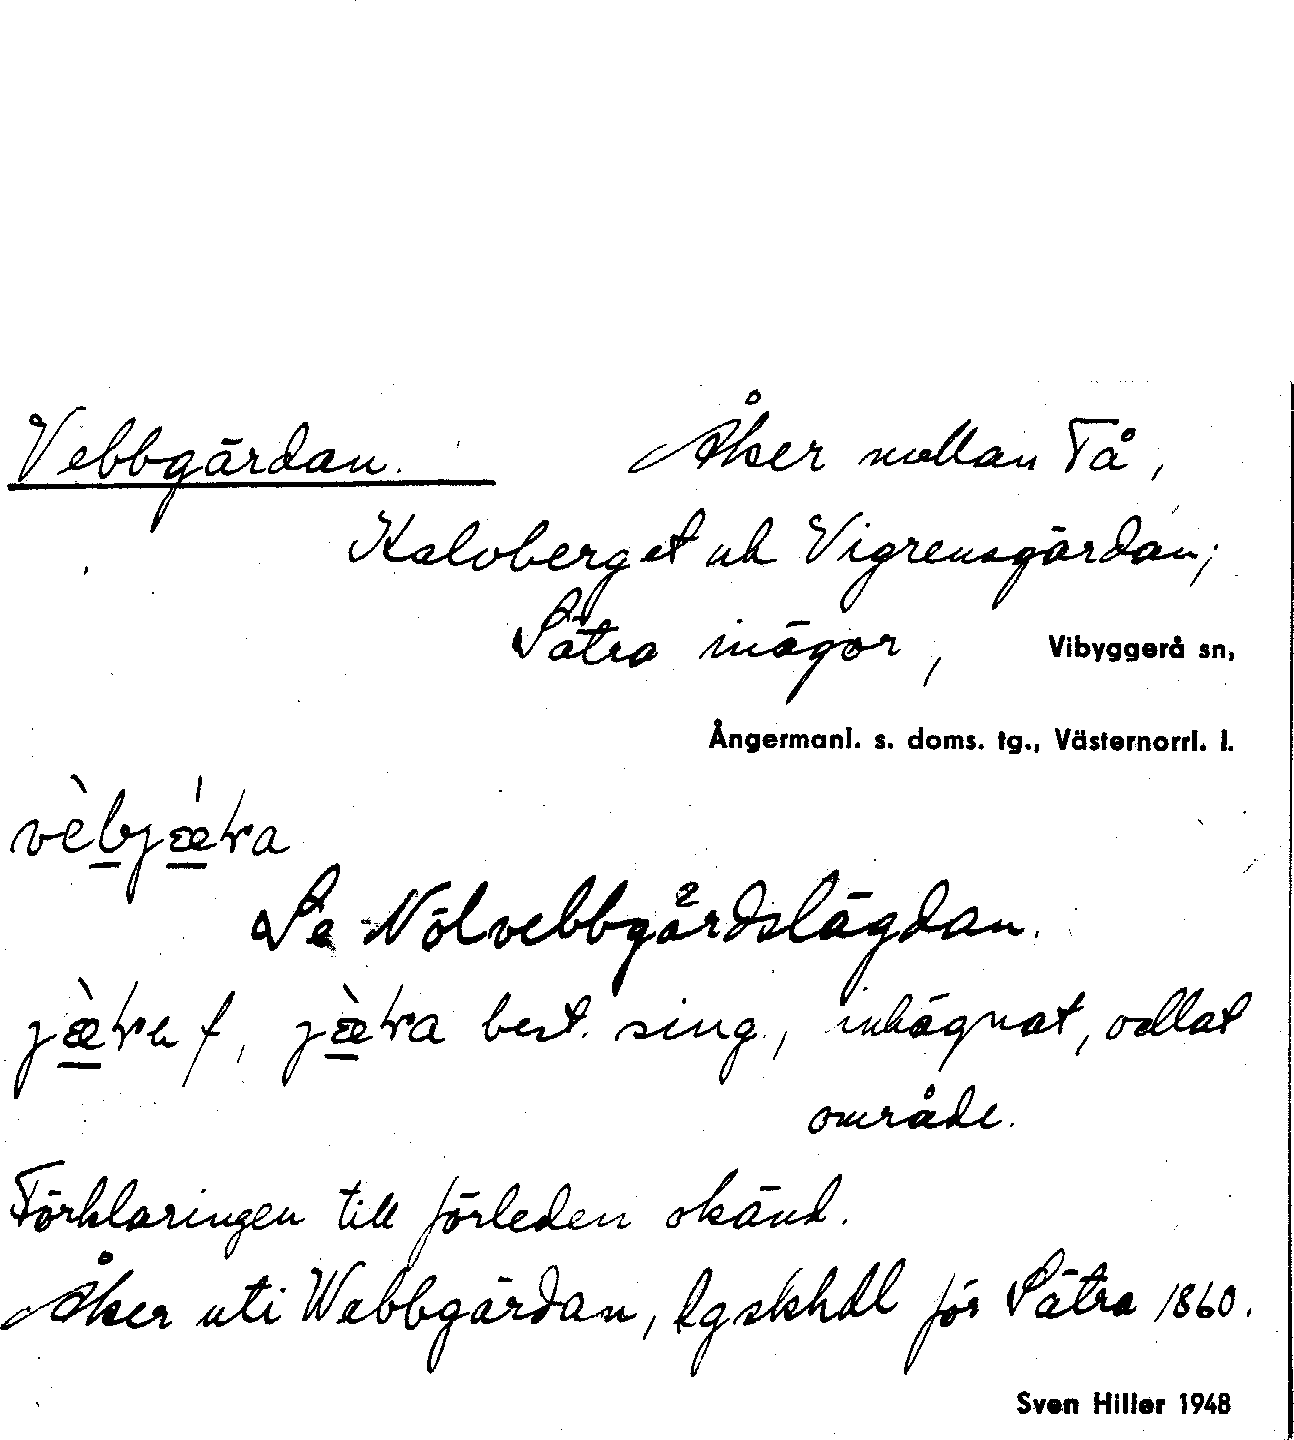 Vebbgärdan. Åker mellan Tå,
Kalvberget och Vigrensgärdan;
Sätra inägor, Vibyggerå sn,
Ångermanl. s. doms. tg., Västernorrl. l.
Se Nölvebbgårdslägdan.
f, best. sing., inhägnat, odlat
område.
Förklaringen till förleden okänd.
Åker uti Webbgärdan, lgskhdl för Sätra 1860.
Sven Hiller 1948